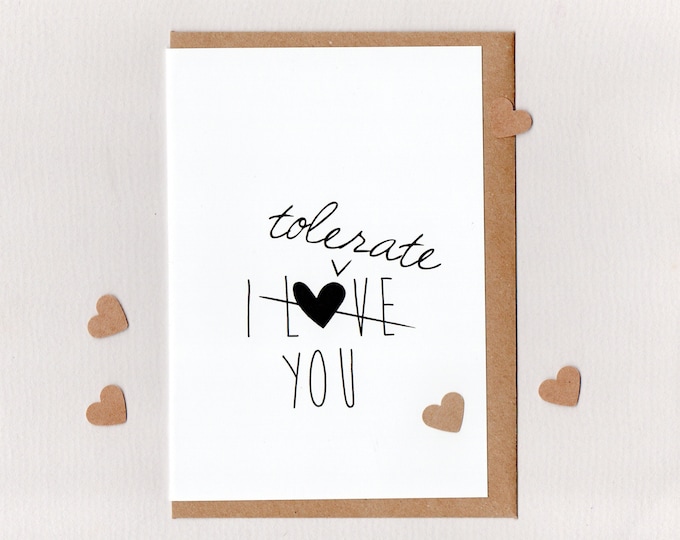 tolerate
I L♥VE
YOU